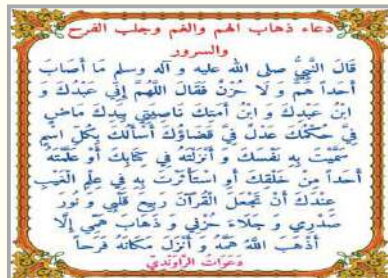 دعاء ذهاب الهم والغم وجلب الفرح
والسرور
قَالَ النَّبِيُّ صلى الله عليه و آله وسلم مَا أَصَابَ
أَحَداً هَمٌّ وَ لَا حُزْنٌ فَقَالَ اللَّهُمَّ إِنِّي عَبْدُكَ وَ
ابْنُ عَبْدِكَ وَ ابْنُ أَمَتِكَ نَاصِيَتِي بِيَدِكَ مَاضٍ
فِيَّ حُكْمُكَ عَدْلٌ فِيَّ قَضَاؤُكَ أَسْأَلُكَ بِكُلِّ اسْمٍ
سَمَّيْتَ بِهِ نَفْسَكَ وَ أَنْزَلْتَهُ فِي كِتَابِكَ أَوْ عَلَّمْتَهُ
أَحَداً مِنْ خَلْقِكَ أَوِ اسْتَأْثَرْتَ بِهِ فِي عِلْمِ الْغَيْبِ
عِنْدَكَ أَنْ تَجْعَلَ الْقُرْآنَ رَبِيعَ قَلْبِي وَ نُورَ
صَدْرِي وَ جَلَاءَ حُزْنِي وَ ذَهَابَ هَمِّي إِلَّا
أَذْهَبَ اللَّهُ هَمَّهُ وَ أَنْزَلَ مَكَانَهُ فَرَحاً
دَعَوَاتُ الرَّاوَنْدِيِّ